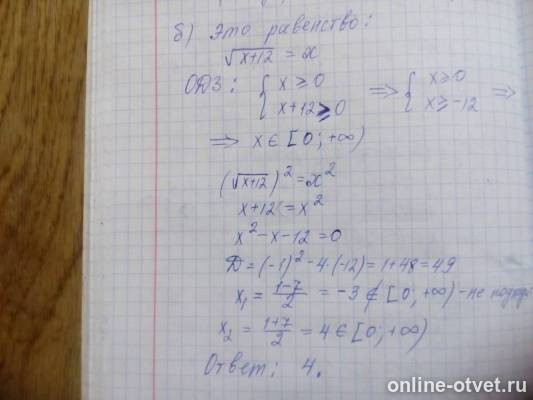 б) Это равенство:
√(x+12) = x
ОДЗ: { x ≥ 0 ⇒ { x ≥ 0
x+12 ≥ 0 x ≥ -12 ⇒
⇒ x ∈ [0; +∞)
(√(x+12))² = x²
x+12 = x²
x² - x - 12 = 0
Д = (-1)² - 4·(-12) = 1+48 = 49
x₁ = (1-7)/2 = -3 ∉ [0; +∞) - не
x₂ = (1+7)/2 = 4 ∈ [0; +∞)
Ответ: 4.
online-otvet.ru